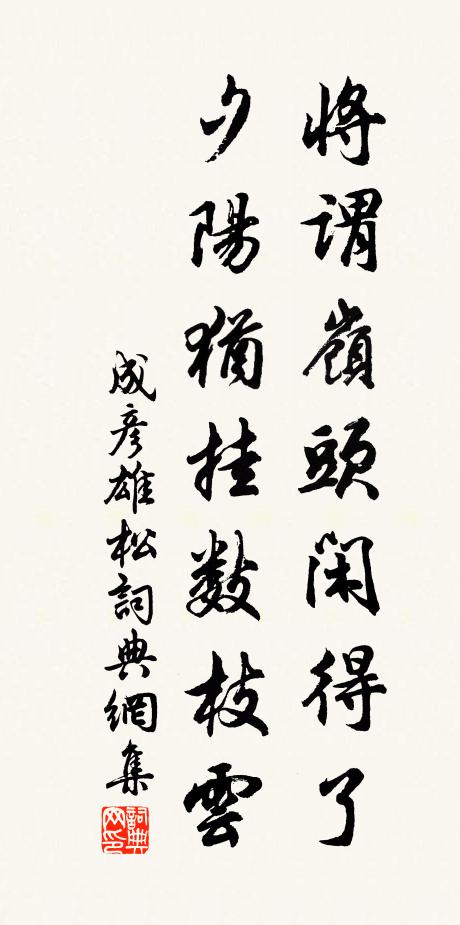 將謂嶺頭閑得了
夕陽猶挂数枝雲
成彦雄松詞典網集
詞典网印